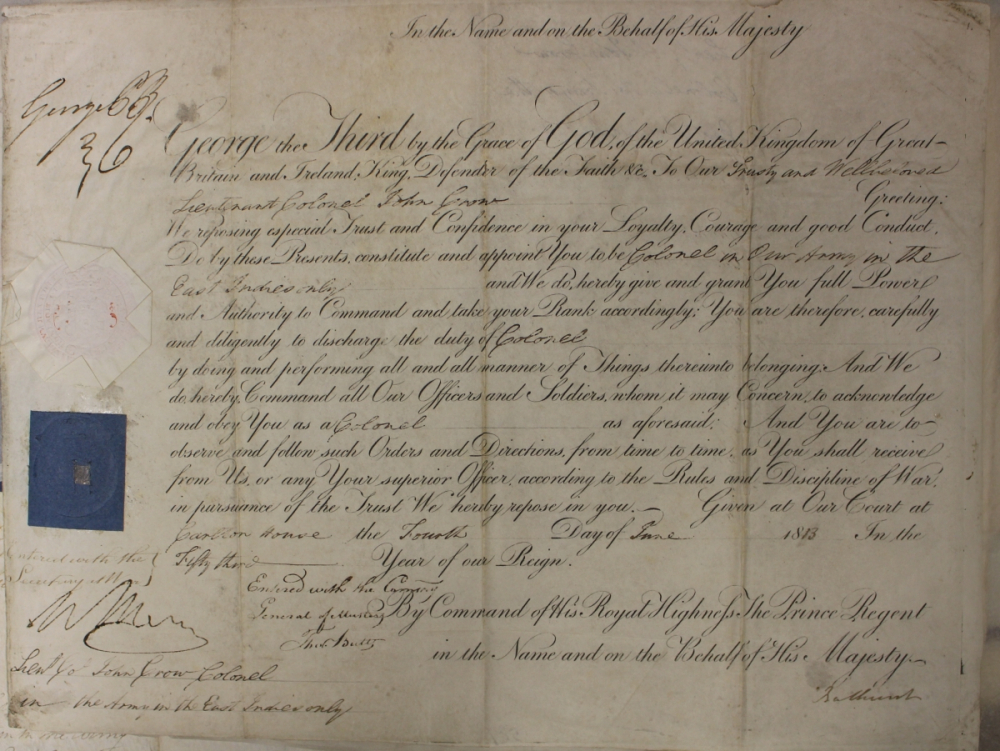 In the Name and on the Behalf of His Majesty
George P R
George the Third by the Grace of God, of the United Kingdom of Great
Britain and Ireland, King, Defender of the Faith &c. To Our Trusty and Wellbeloved
Lieutenant Colonel John Crow Greeting:
We reposing especial Trust and Confidence in your Loyalty, Courage and good Conduct,
Do by these Presents, constitute and appoint You to be Colonel in Our Army in the
East Indies only and We do, hereby give and grant You full Power
and Authority to Command and take your Rank accordingly; You are therefore, carefully
and diligently to discharge the duty of Colonel
by doing and performing all and all manner of Things thereunto belonging: And We
do, hereby, Command all Our Officers and Soldiers, whom it may Concern, to acknowledge
and obey You as a Colonel as aforesaid: And You are to
observe and follow such Orders and Directions, from time to time, as You shall receive
from Us, or any Your superior Officer, according to the Rules and Discipline of War,
in pursuance of the Trust We hereby repose in you. Given at Our Court at
Carlton House the Fourth Day of June 1813 In the
Fifty third Year of our Reign.
Entered with the
Entered with the
General of Musters By Command of His Royal Highness The Prince Regent
Butts
in the Name and on the Behalf of His Majesty
Bathurst
Lieut Col John Crow Colonel
in the Army in the East Indies only